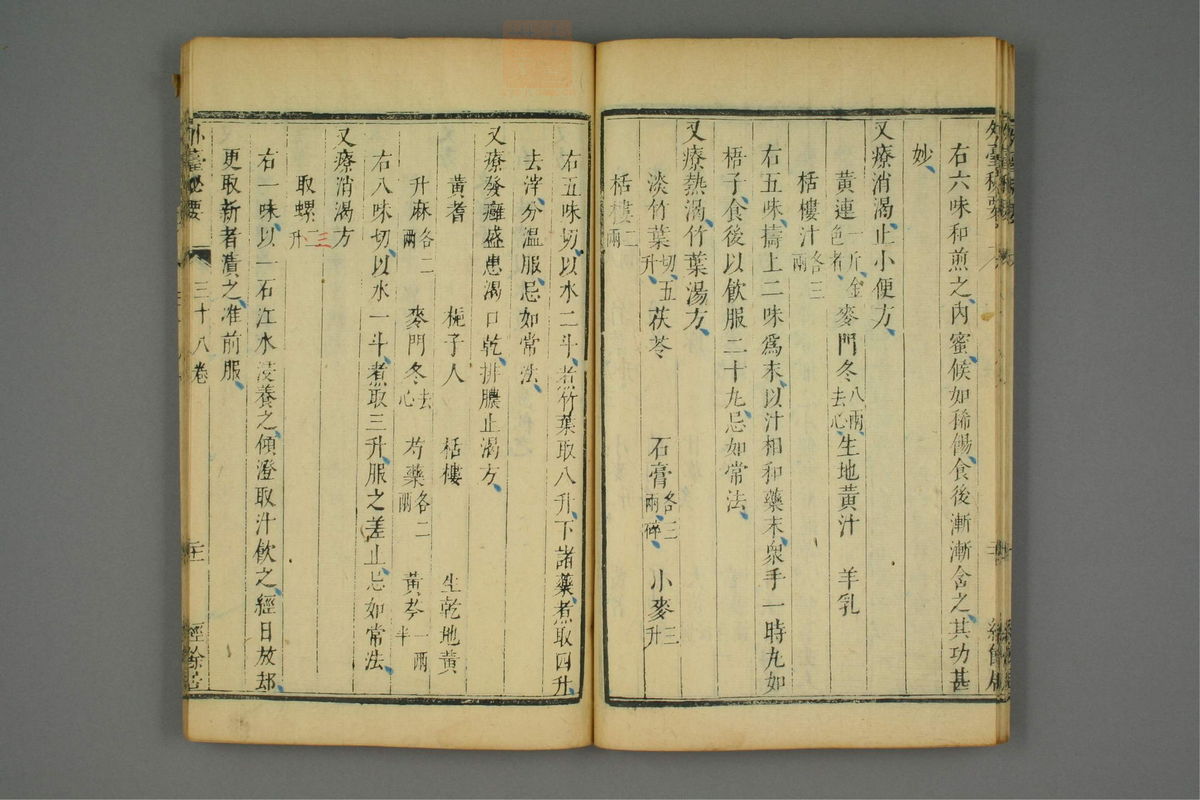 外臺秘要
右六味和煎之內蜜候如稀餳食後漸漸含之其功甚
妙
又療消渴止小便方
黃連一斤金色者 麥門冬八兩去心 生地黃汁 羊乳
栝樓汁各三兩
右五味擣上二味爲末以汁相和藥末衆手一時丸如
梧子食後以飲服二十丸忌如常法
又療熱渴竹葉湯方
淡竹葉切五升 茯苓 石膏各三兩碎 小麥三升
栝樓二兩
右五味切以水二斗煮竹葉取八升下諸藥煮取四升
去滓分溫服忌如常法
又療發癰盛患渴口乾排膿止渴方
黃耆 梔子人 栝樓 生乾地黃
升麻各二兩 麥門冬去心 芍藥各二兩 黃芩一兩半
右八味切以水一斗煮取三升服之差止忌如常法
又療消渴方
取螺二升 三
右一味以一石江水浸養之傾澄取汁飲之經日放却
更取新者漬之准前服
外臺秘要 三十八卷 二十一 經餘居